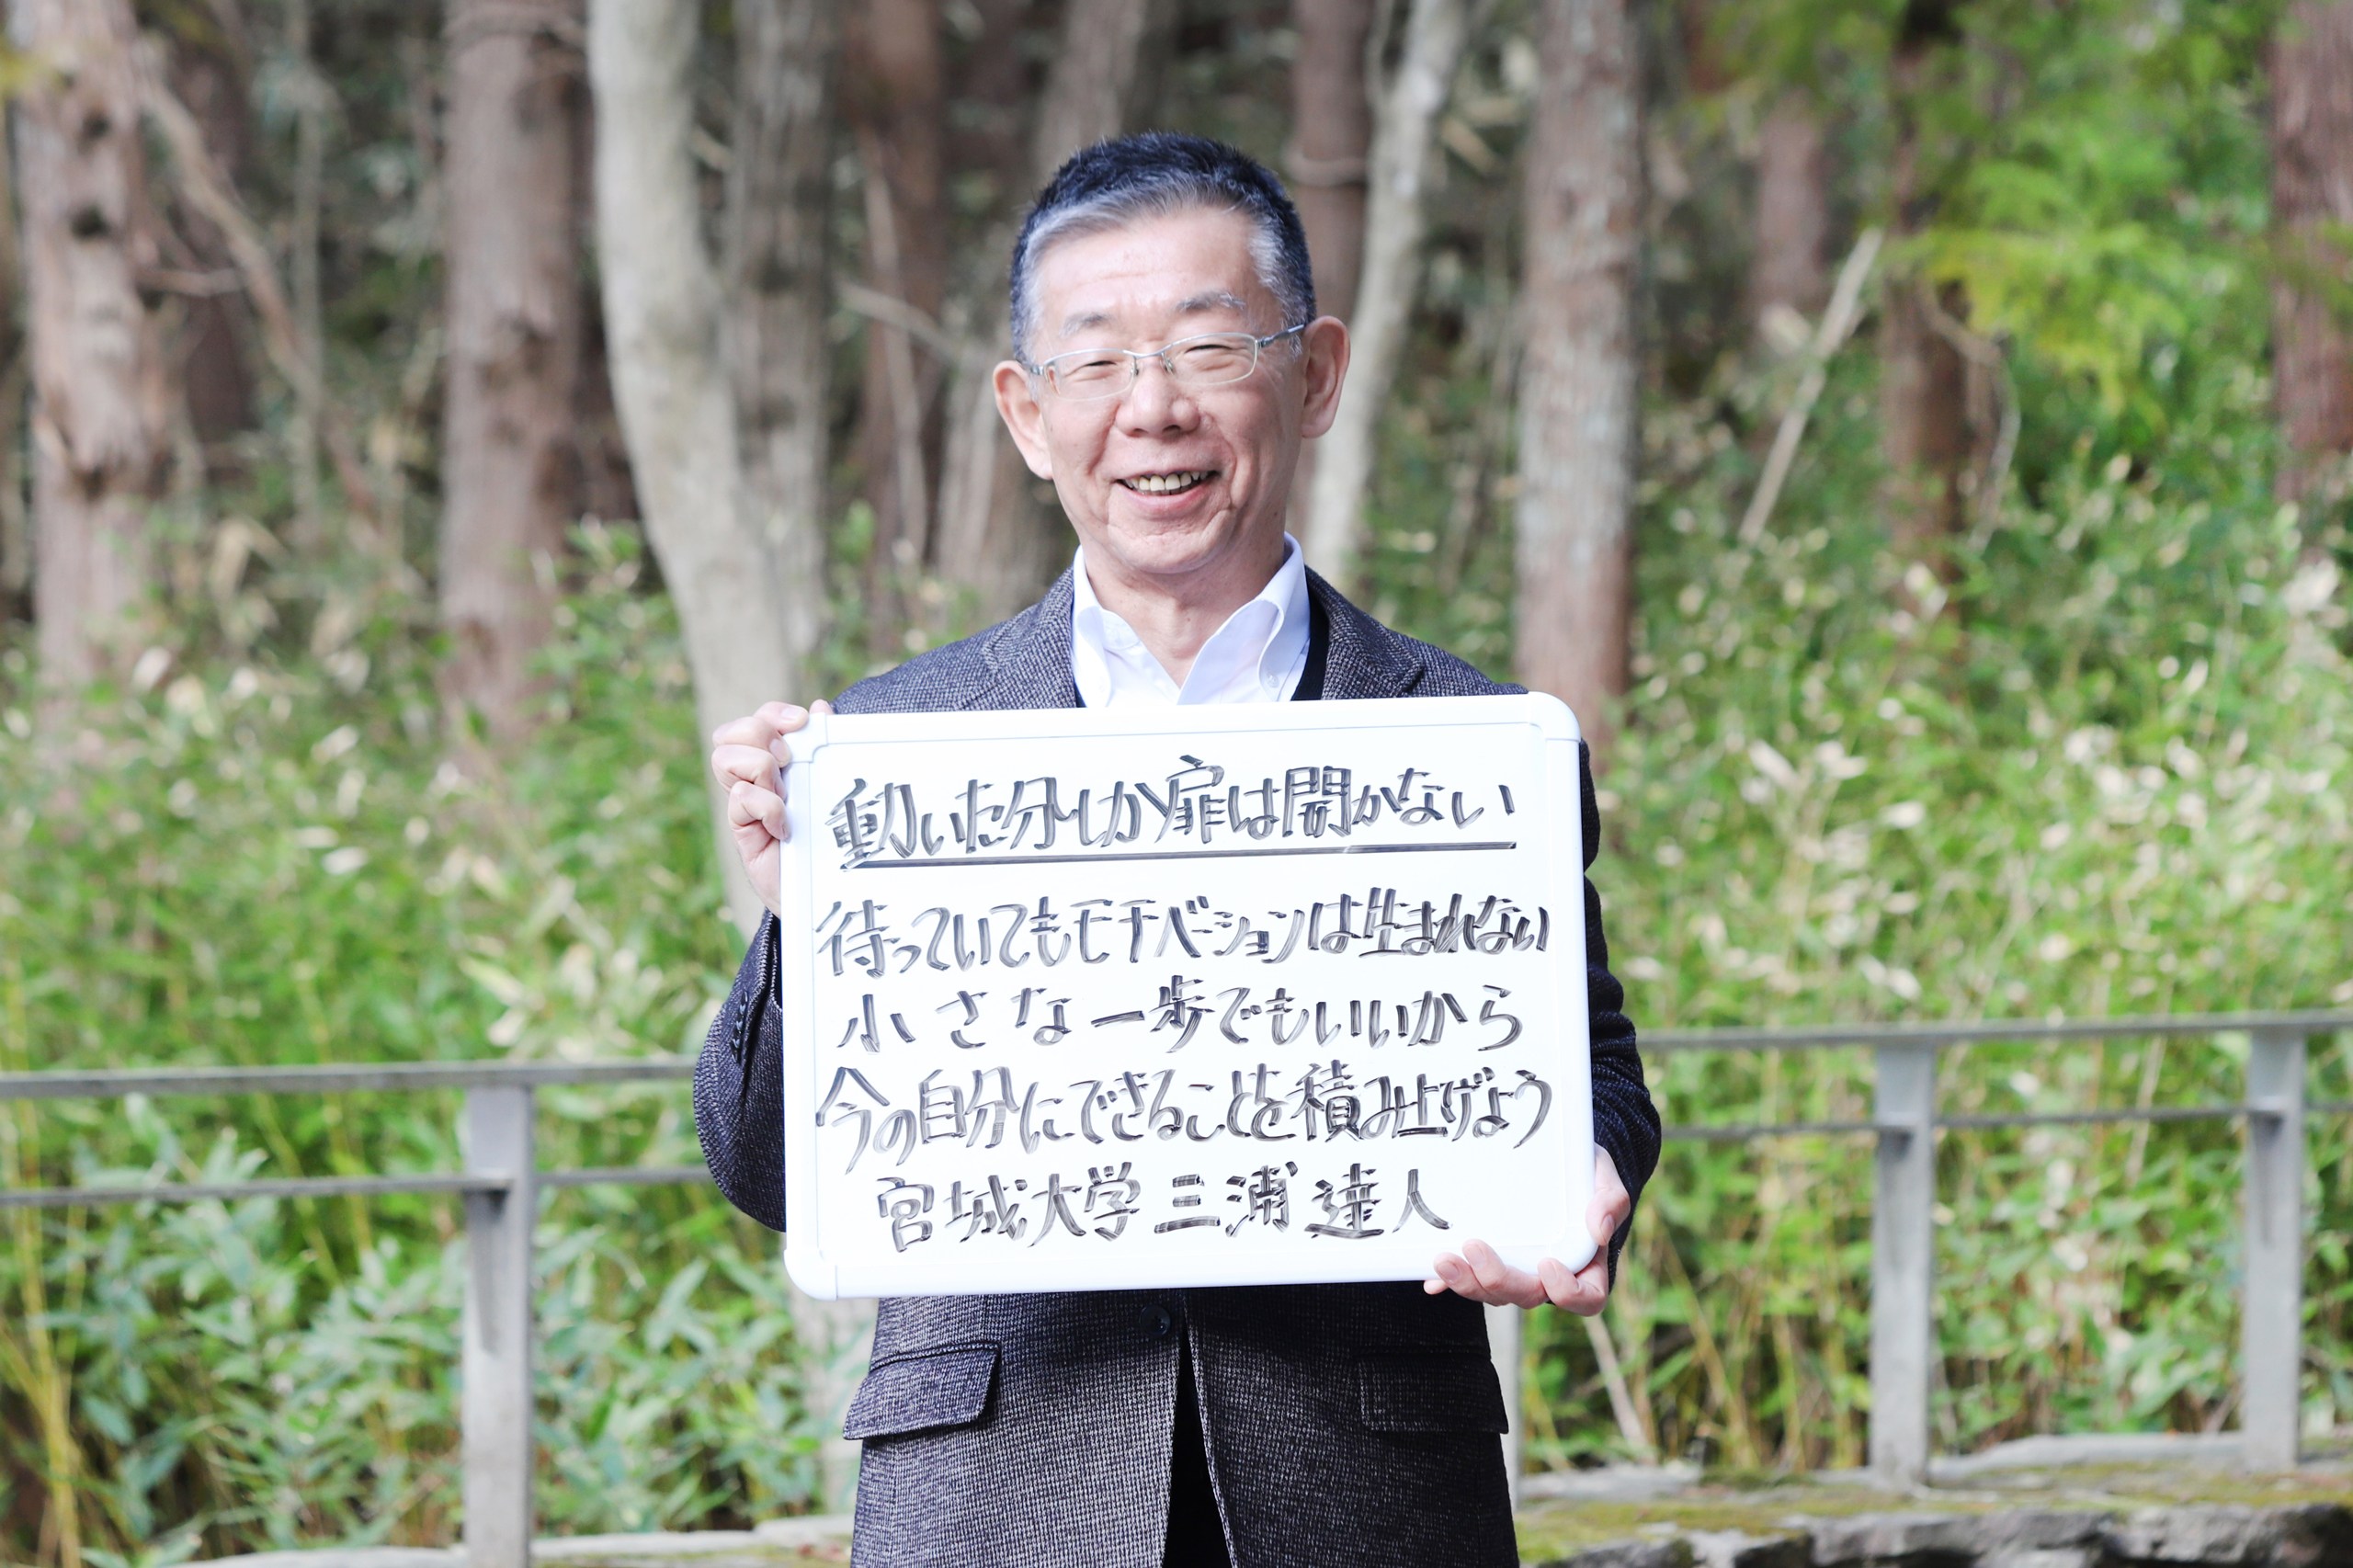 動いた分しか扉は開かない
待っていてもモチベーションは生まれない
小さな一歩でもいいから
今の自分にできることを積み上げよう
宮城大学 三浦 達人